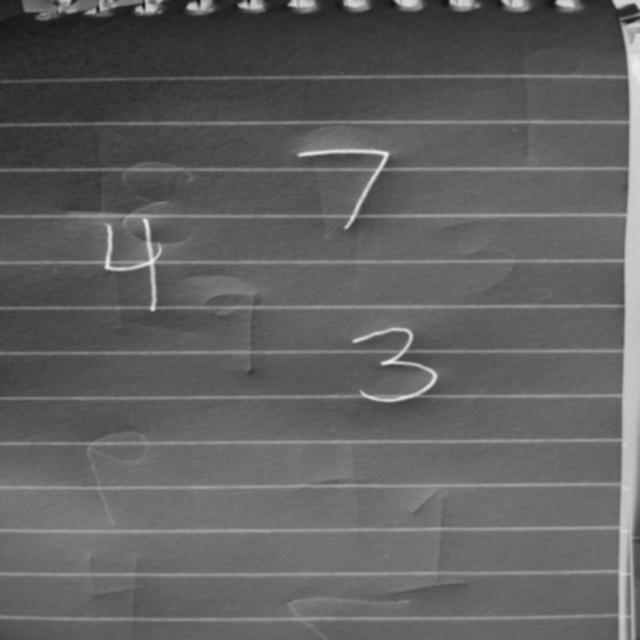 7
4
3